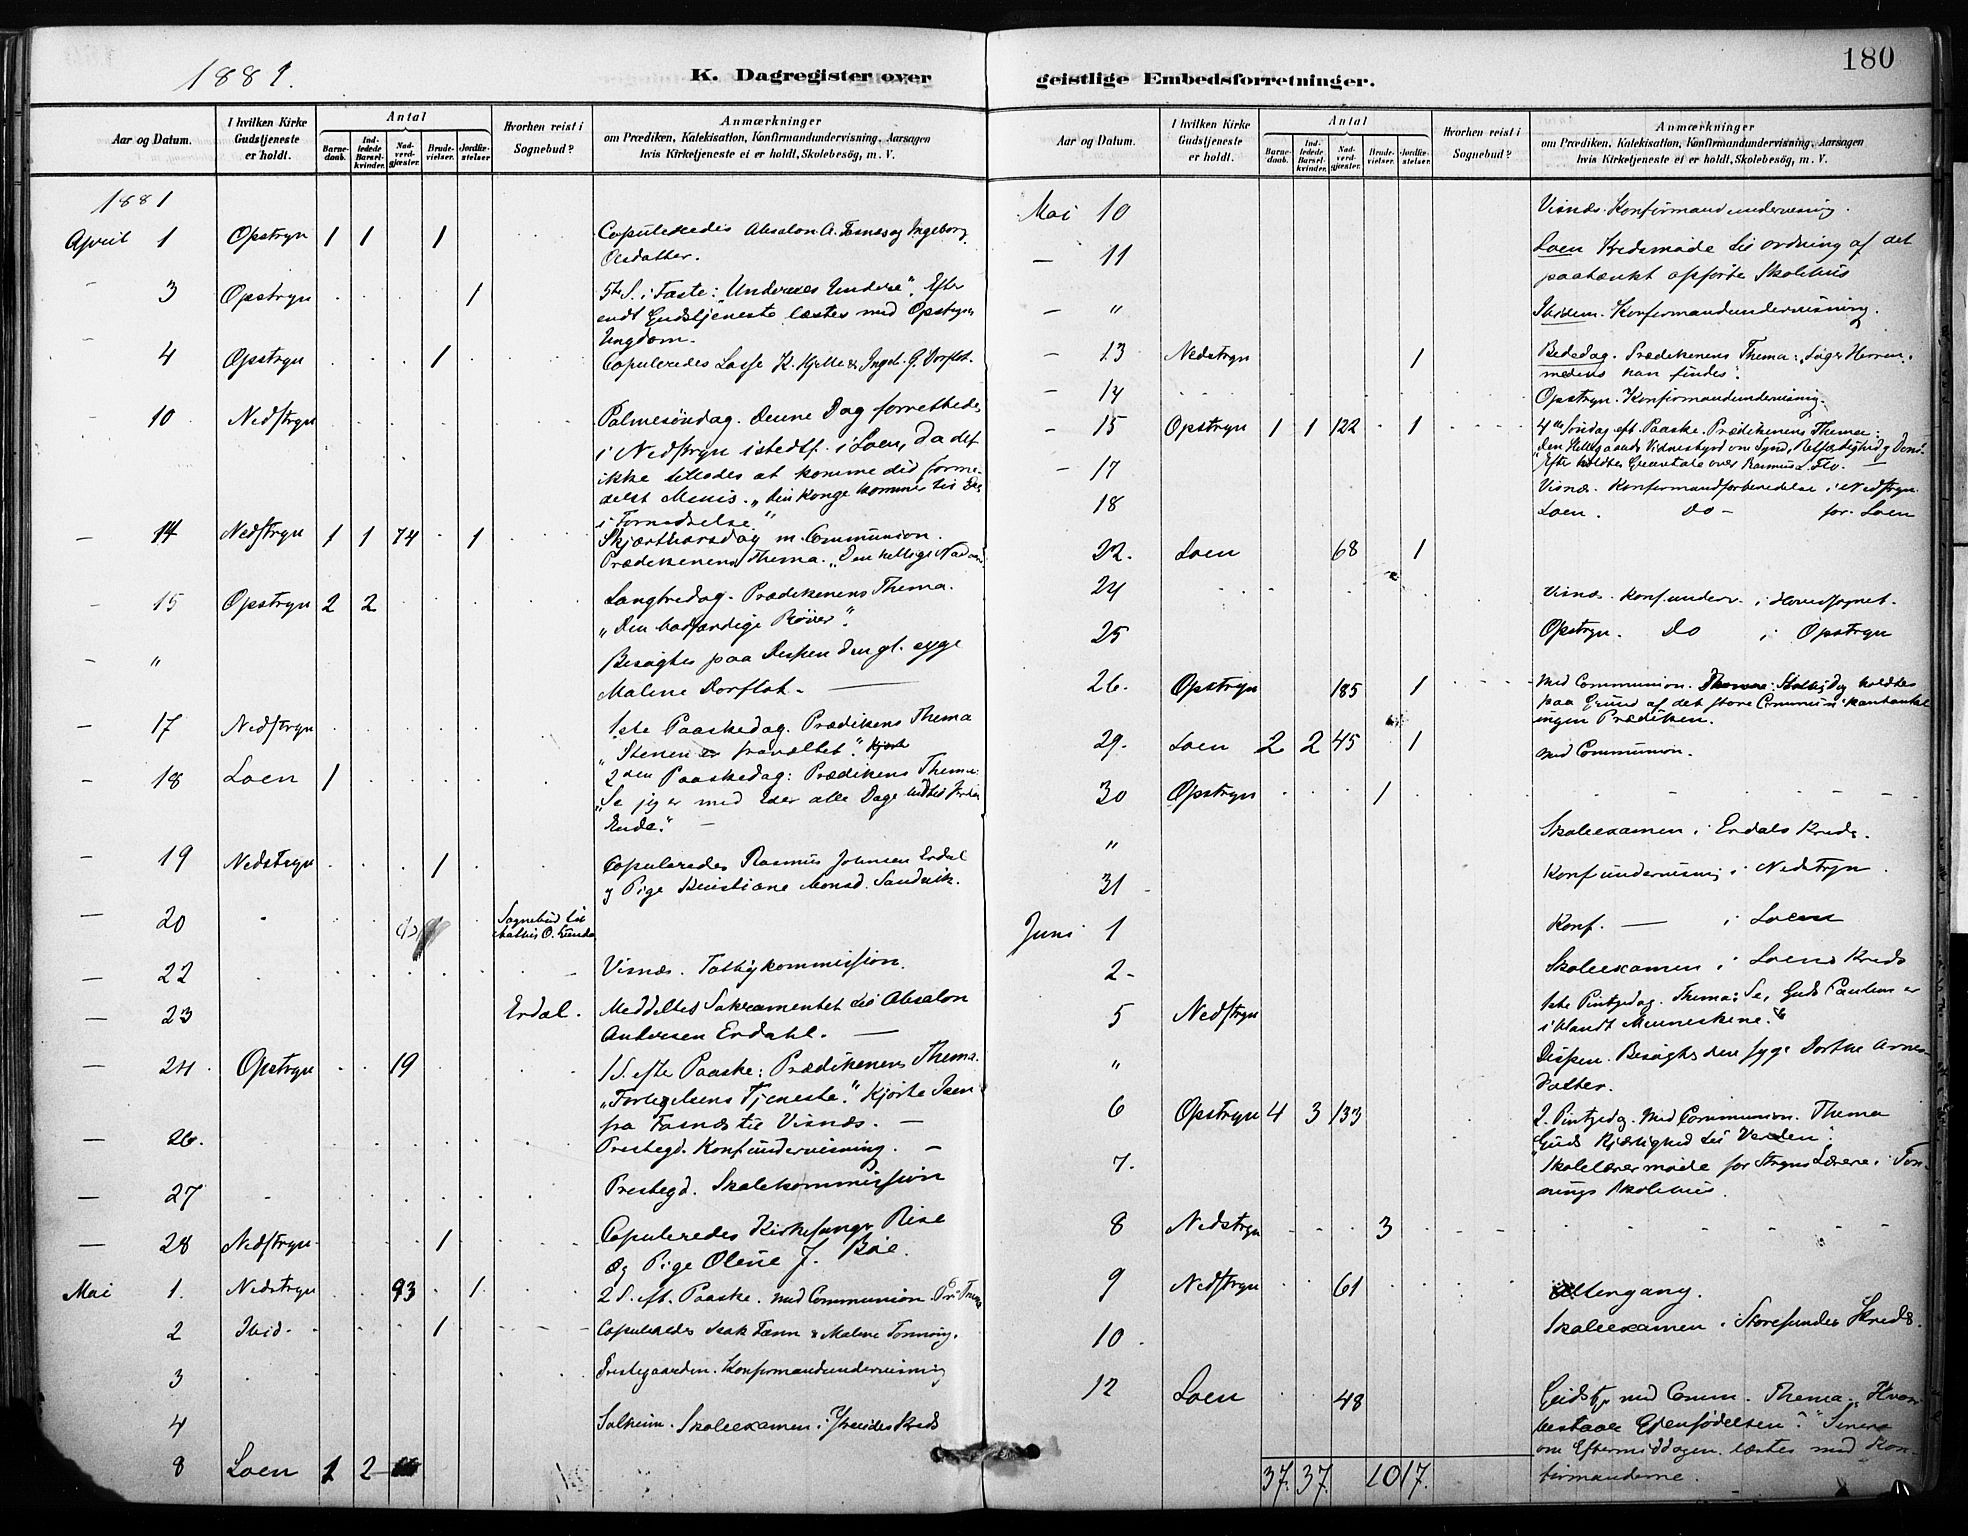 1881.
K. Dagregister over
geistlige Embedsforretninger.
180
Aar og Datum.
I hvilken Kirke Gudstjeneste er holdt.
Antal
Barne-daab.
Ind-ledede Barsel-kvinder.
Nad-verd-gjæster.
Brude-vielser.
Jordfæ-stelser.
Hvorhen reist i Sognebud?
Anmærkninger
om Prædiken, Katekisation, Konfirmandundervisning, Aarsagen
hvis Kirketjeneste ei er holdt, Skolebesög, m. V.
1881
April 1 Opstryn 1 1 1 Copuleredes Absalon A. og Ingeborg
Olsdatter.
- 3 Opstryn 1 5te S. i Faste: "Undernes Undere". Efter
endt Gudstjeneste læstes med Opstryns
Ungdom.
4 Opstryn 1 Copuleredes Lasse K. Hjelle & Ingeb. G. Dorflot.
- 10 Nedstryn Palmesöndag. Denne Dag forrettedes
i Nedstryn istedtf. i Loen, da det
ikke tillodes at komme did forme-
delst Menis. "Din Konge kommer til Dig
i Fornedrelse"
- 14 Nedstryn 1 1 74 1 Skjærthorsdag m. Communion.
Prædikenens Thema. "Den hellige
- 15 Opstryn 2 2 Langfredag. Prædikenens Thema.
"Den bodfærdige Röver".
- " Besögtes paa Dispen den gl. syge
Malene Dorflot. —
- 17 Nedstryn 1ste Paaskedag. Prædikens Thema
"Stenen er fravæltet".
- 18 Loen 1 2den Paaskedag: Prædikens Thema:
"Se jeg er med Eder alle Dage indtil Verdens
Ende." —
- 19 Nedstryn 1 Copuleredes Rasmus Johnsen Erdal
og Pige Kristiane Monsd. Sandvik.
- 20 Sognebud til
O.
- 22 Visnæs. Fattigkommission.
- 23 Erdal. Meddeltes Sakramentet til Absalon
Andersen Erdahl. —
- 24 Opstryn 19 1 S. efter Paaske: Prædikenens Thema.
Tjeneste". Kjørte Isen
fra til Visnæs. —
- 26. Prestegd. Konfundervisning. —
- 27 Prestegd. Skolekommission
- 28 Nedstryn 1 Copuleredes Kirkesanger Rise
og Pige Oline J. Böe.
Mai 1. Nedstryn 93 1 2 S. eft. Paaske. med Communion.
2 Ibid. 1 Copuleredes Isak & Malene Tonning.
3 Prestegaarden. Konfirmandundervisning
4 Solheim. Skoleexamen i Kreds
8 Loen 1 2
Aar og Datum.
I hvilken Kirke Gudstjeneste er holdt.
Antal
Barne-daab.
Ind-ledede Barsel-kvinder.
Nad-verd-gjæster.
Brude-vielser.
Jordfæ-stelser.
Hvorhen reist i Sognebud?
Anmærkninger
om Prædiken, Katekisation, Konfirmandundervisning, Aarsagen
hvis Kirketjeneste ei er holdt, Skolebesög, m. V.
Mai 10 Visnæs. Konfirmandundervisning.
- 11 Loen Kredsmöde til ordning af det
paatænkt opförte Skolehus
- " Ibidem. Konfirmandundervisning.
- 13 Nedstryn 1 Bededag. Prædikenens Thema: "Söger Herren,
medens han findes".
- 14 Opstryn. Konfirmandundervisning.
- 15 Opstryn 1 1 122 1 4de Söndag eft. Paaske. Prædikenens Thema:
"Den Helligaands Vidnesbyrd om Synd, Retfærdighed og Dom".
Efter holdtes Gravtale over Rasmus L. Flo. —
- 17 Visnæs. Konfirmandforberedelse i Nedstryn.
18 Loen. Do - for Loen
22. Loen 68 1
24 Visnæs. Konf.underv. i Hovedsognet.
25 Opstryn. Do i Opstryn
26. Opstryn 185 1 Med Communion. holdtes
paa Grund af det store Communikantantal
ingen Prædiken.
29. Loen 2 2 45 1 med Communion.
30 Opstryn 1
" Skoleexamen i Erdals Kreds.
31 Konfundervisning i Nedstryn.
Juni 1 Konf. — i Loen
2 Skoleexamen i Loens Kreds
5 Nedstryn 1ste Pintsedag. Thema: Se, Guds er
iblandt Menneskene."
" Dispen. Besögtes den syge Dorthe Arnes-
datter.
6 Opstryn 4 3 133 2. Pintsedag. Med Communion. Thema
"Guds Kjærlighed til Verden".
7. Skolelærermöde for Stryns Lærere i Ton-
nings Skolehus.
8 Nedstryn 3
9 Nedstryn 61 Altergang.
10 Skoleexamen i Storesunds Kreds.
12 Loen 48 Gudstj. med Comm. Thema: "Hvori
bestaar Gjenfödelsen?" Senere
om Eftermiddagen læstes med Kon-
firmanderne.
37. 37. 10 17.